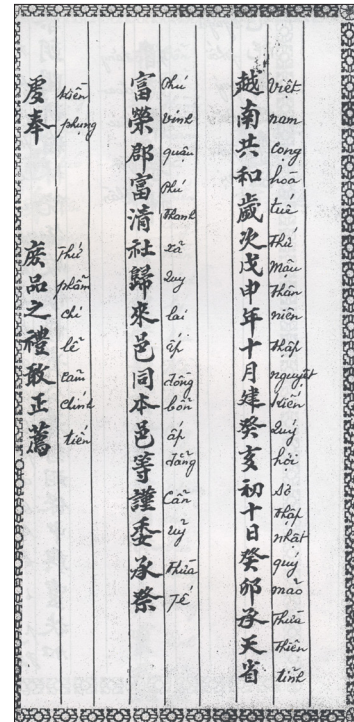 越南共和歲次戊申年十月建癸亥初十日癸卯承天省
Việt nam Cong hoà tuế Thứ Mậu Thân niên thập nguyệt kiến Quý hợi sơ thập nhật quý mão Thừa Thiên tỉnh
富榮郡富清社歸來邑同本邑等謹委承祭
Phú vinh quận Phú Thanh xã Quy lai ấp đồng bổn ấp đẳng Cẩn uỷ Thừa Tế
虔奉 庶品之禮敢正薦
kiền phụng Thứ phẩm chi lễ cảm chính tiến